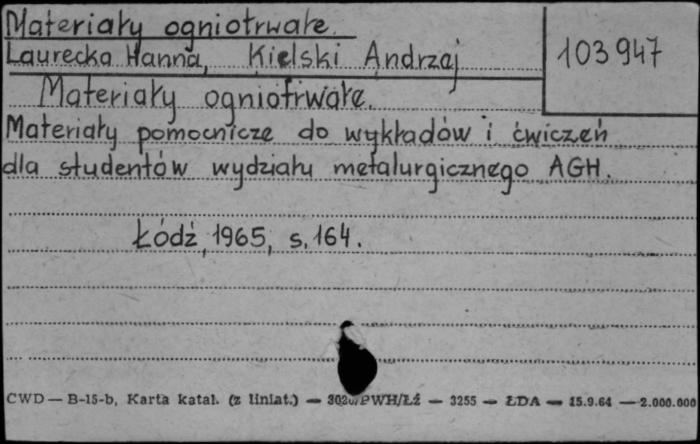 Materiały ogniotrwałe.
Laurecka Hanna, Kielski Andrzej
103947
Materiały ogniotrwałe.
Materiały pomocnicze do wykładów i ćwiczeń
dla studentów wydziału metalurgicznego AGH.
Łódź, 1965, s. 164.
CWD — B-15-b, Karta katal. (z liniat.) — PWH/Łź — 3255 — ŁDA — 15.9.64 — 2.000.000